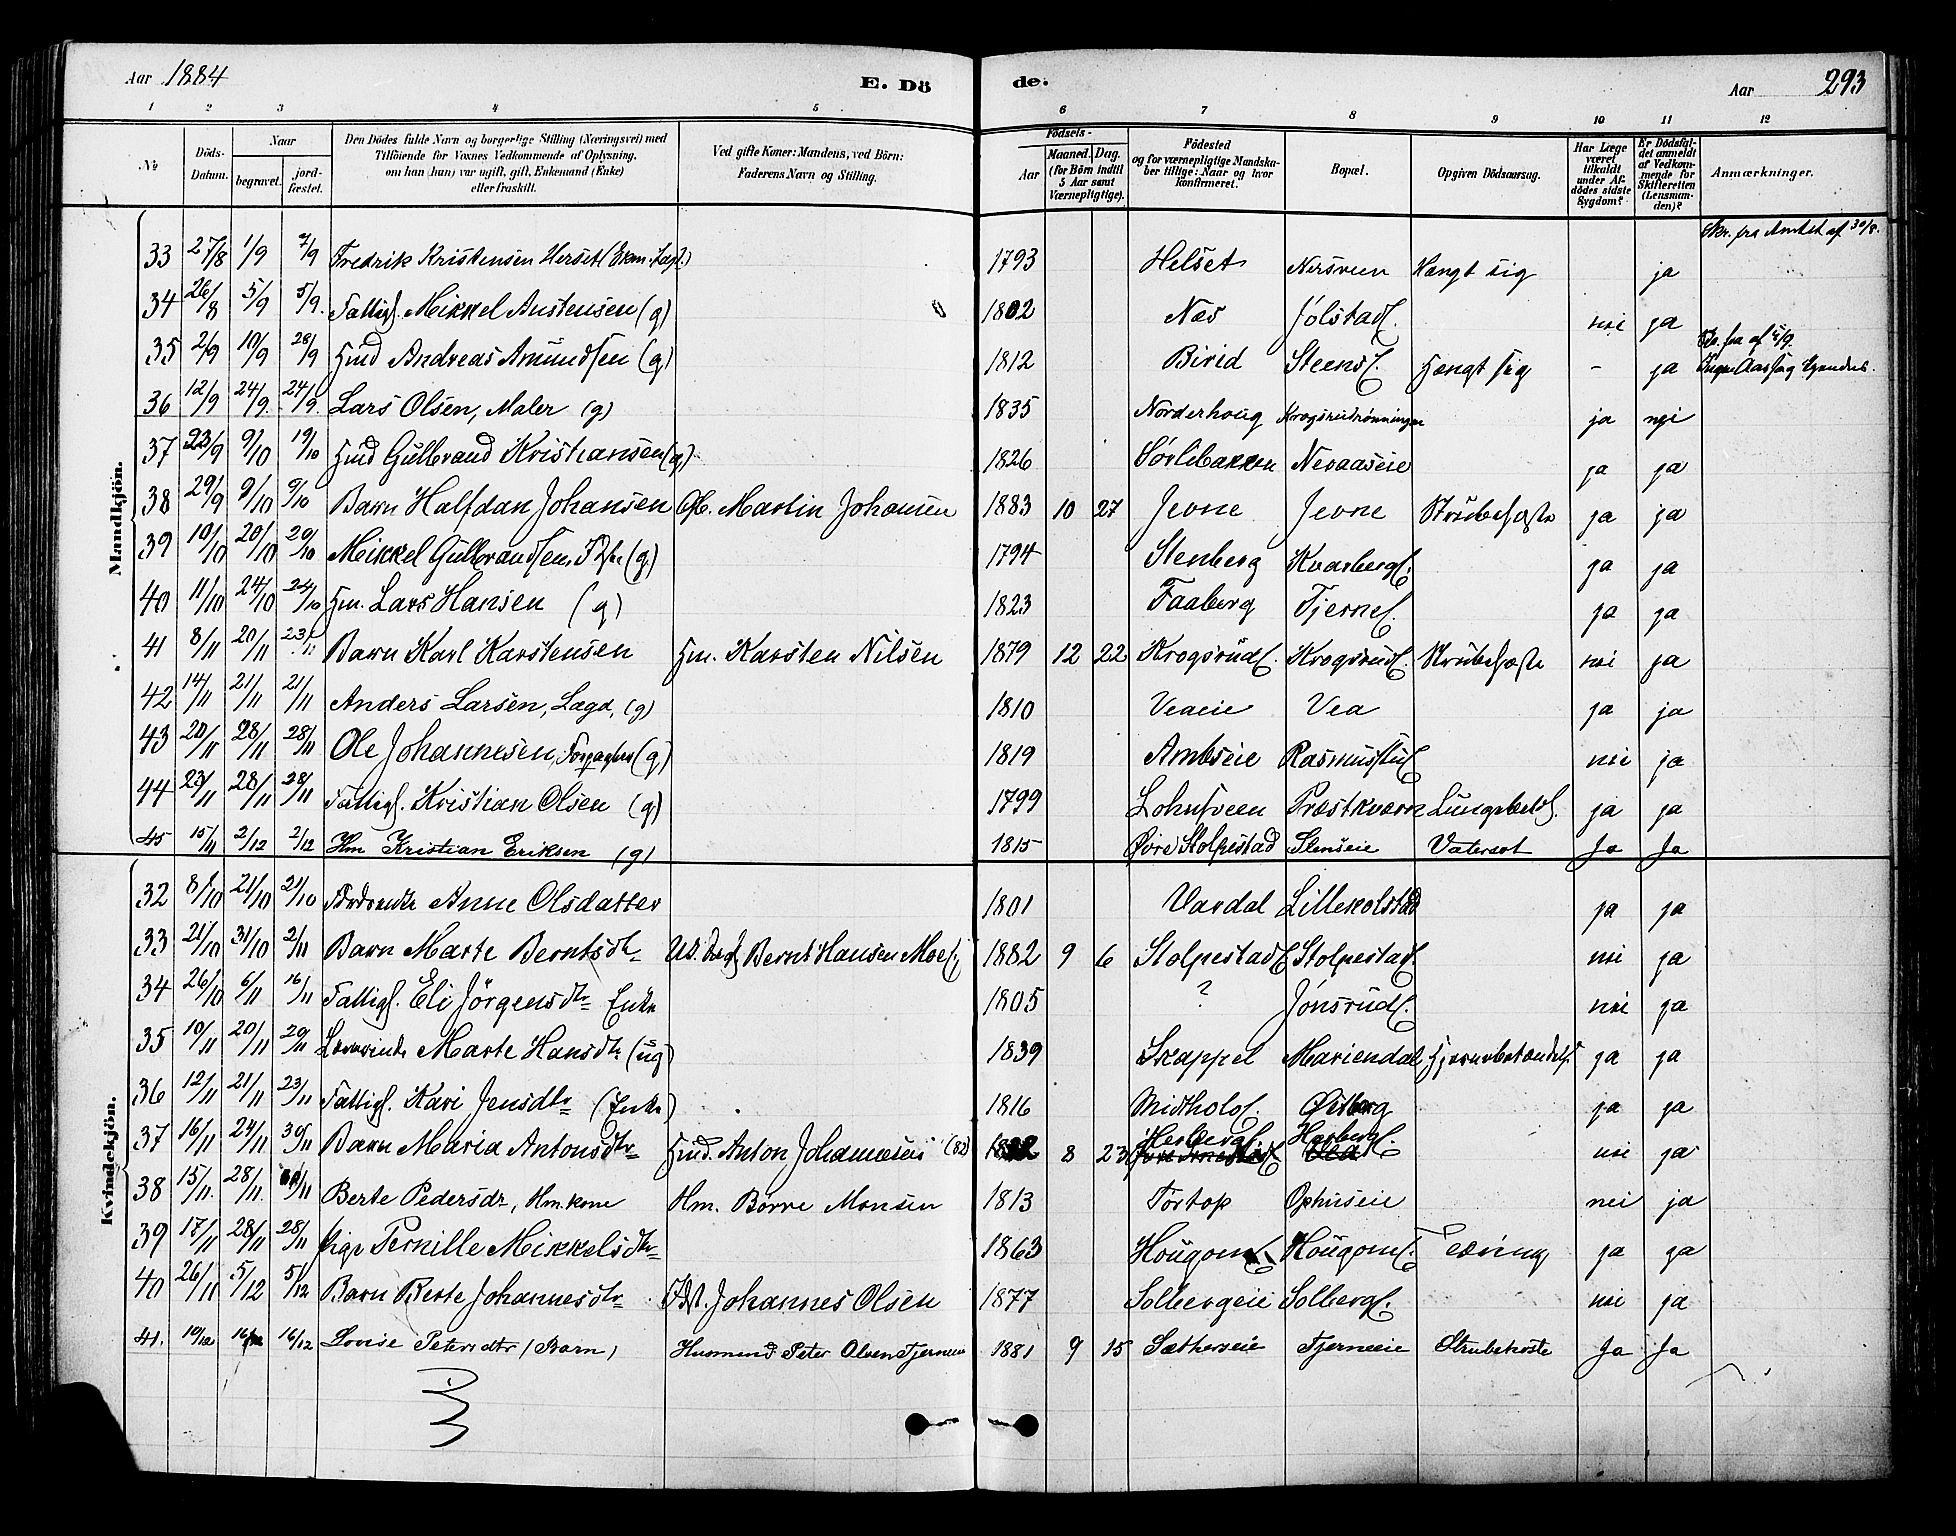 Aar 1884 E. Dö de. Aar 293
1 2 3 4 5 6 7 8 9 10 11 12
No
Döds-Datum.
Naar
begravet.
jord-fæstet.
Den Dödes fulde Navn og borgerlige Stilling (Næringsvei) med
Tilföiende for Voxnes Vedkommende af Oplysning,
om han (hun) var ugift, gift, Enkemand (Enke)
eller fraskilt.
Ved gifte Koner: Mandens, ved Börn:
Faderens Navn og Stilling.
Födsels-
Aar
Maaned. Dag.
(for Börn indtil
5 Aar samt
Værnepligtige).
Födested
og for værnepligtige Mandska-
ber tillige: Naar og hvor
konfirmeret.
Bopæl.
Opgiven Dödsaarsag.
Har Læge
været
tilkaldt
under Af-
dödes sidste
Sygdom?
Er Dödsfal-
det anmeldt
af Vedkom-
mende for
Skifteretten
(Lensman-
den)?
Anmærkninger.
Mandkjön.
Skr. fra Amtet af 30/8.
33 27/8 1/9 7/9 Fredrik Kristensen Herset 1793 Helset Nersveen Hængt sig ja
34 26/8 5/9 5/9. Fattigl. Mikkel Austensen (g) 1802 Næs Jölstadl. nei ja
35 2/9 10/9 28/9 Hmd Andreas Amundsen (g) 1812 Birid Steensl. Hængt sig - ja
36 12/9 24/9. 24/9. Lars Olsen, Maler (g) 1835 Norderhoug Krogsrudrönningen ja nei
37 23/9 9/10 19/10 Hmd Gulbrand Kristiansen (g) 1826 Sörlibakken Nevaaseie ja ja
38 29/9 9/10 9/10 Barn Halfdan Johansen Martin Johansen 1883 10 27 Jevne Jevne Strubehoste ja ja
39 10/10 20/10 20/10 Mikkel Gulbrandsen, (g) 1794 Stenberg Kvarbergl. ja ja
40 11/10 24/10 24/10 Hm. Lars Hansen (g) 1823 Faaberg Tjernel. ja ja
41 8/11 20/11 23/11 Barn Karl Karstensen Hm. Karsten Nilsen 1879 12 22 Krogsrudl. Krogsrudl. Strubehoste nei ja
42 14/11 21/11 21/11 Anders Larsen, Lægd, (g) 1810 Veaeie Vea ja ja
43 20/11 28/11 28/11 Ole Johannesen, Forpagter (g) 1819 Ambseie Rasmusstul nei ja
44 23/11 28/11 28/11 Fattigl. Kristian Olsen (g) 1799 Lohnsveen Præstkværn Lungebetdl. ja ja
45 15/11 2/12 2/12 Hm Kristian Eriksen (g) 1815 Övre Stolpestad Stenseie Vatersot Ja Ja
Kvindekjön.
32 8/10 21/10 21/10 Anne Olsdatter 1801 Vardal Lillekolstad ja ja
33 21/10 31/10 2/11 Barn Marte Berntsdtr Bernt Hansen Moe 1882 9 6 Stolpestadl Stolpestadl nei ja
34 26/10 6/11 16/11 Fattigl. Eli Jörgensdtr Enke 1805 ? Jönsrudl. nei ja
35 10/11 20/11 20/11 Marte Hansdtr (ug) 1839 Skappel Mariendal Hjernebetændelse ja ja
36 12/11 21/11 23/11 Fattigl. Kari Jensdtr (Enke) 1816 Midtholol. Östberg ja ja
37 16/11 24/11 30/11 Barn Maria Antonsdtr Hmd. Anton Johannesen (82) 1882 8 23 Herbergl. Herbergl. nei ja
38 15/11. 28/11. Berte Pedersdr, Hm.kone Hm. Börre Monsen 1813 Törtop Ophuseie nei ja
39 17/11 28/11 28/11 Pige Pernille Mikkelsdtr 1863 Hougoml Hougoml. Tæring ja ja
40 26/11 5/12 5/12 Barn Berte Johannesdtr Fdst. Johannes Olsen 1877 Solbergeie Solbergl. nei ja
41. 10/12 16/12 16/12 Lovise Petersdtr (Barn) Husmand Peter Olsen Tjerneeie 1881 9 15 Sætherseie Tjerneeie Strubehoste Ja Ja